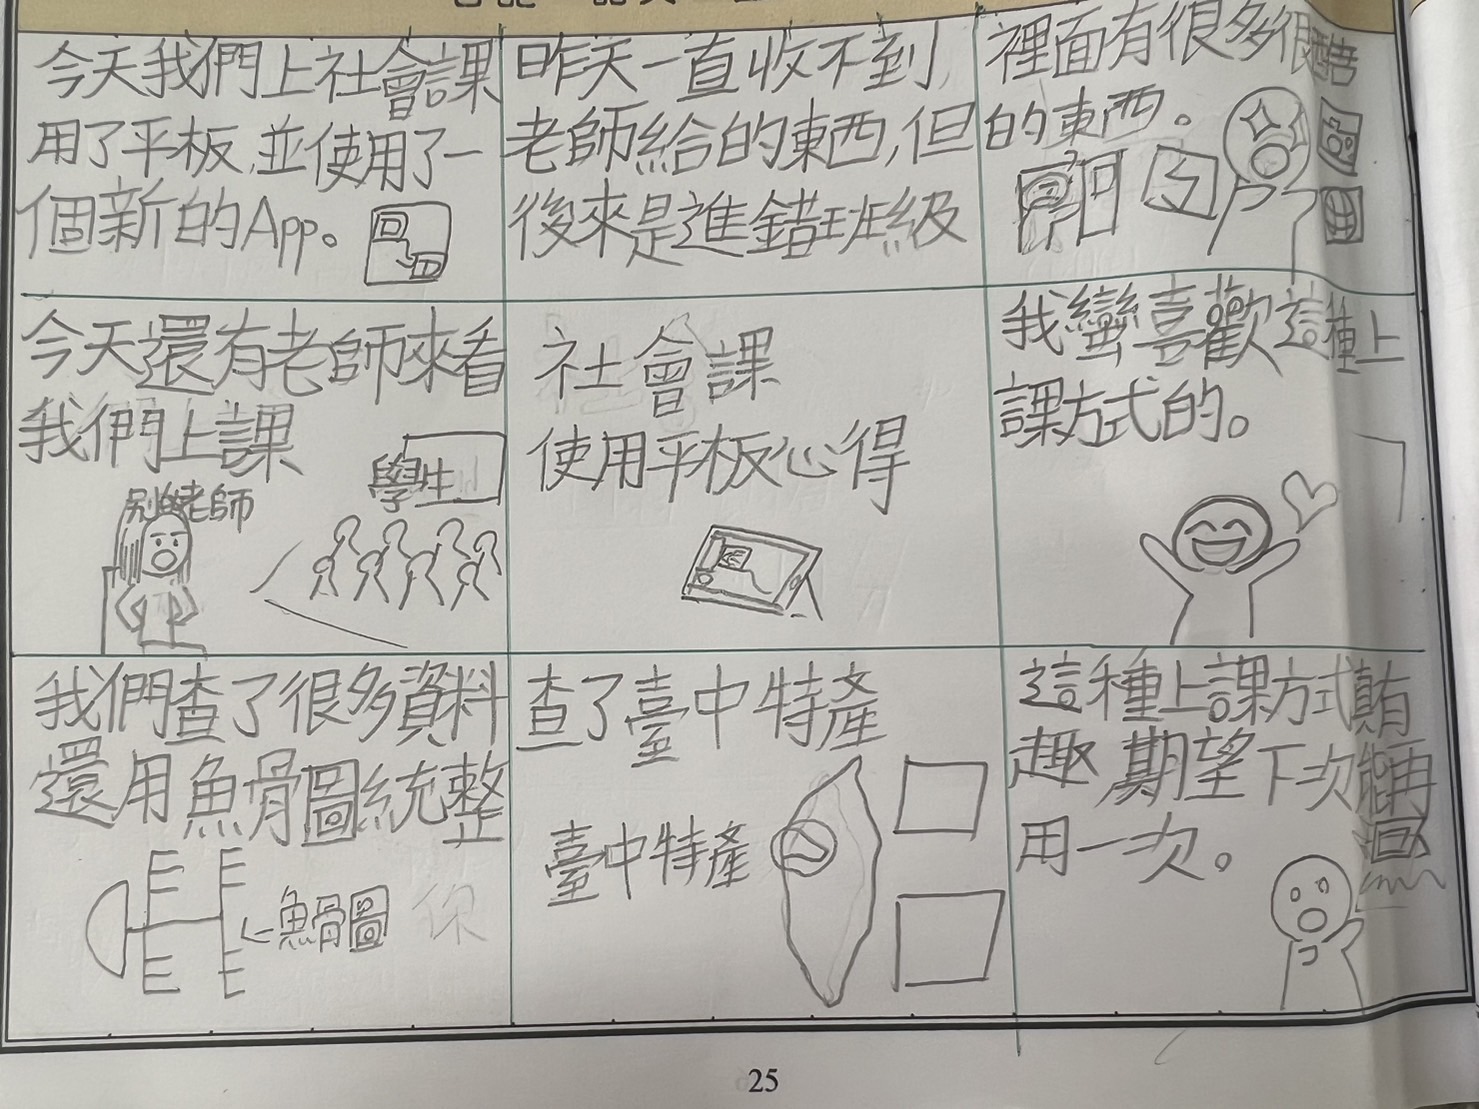 今天我們上社會課
用了平板,並使用了一
個新的App。
昨天一直收不到
老師給的東西,但
後來是進錯班級
裡面有很多很酷
的東西。
今天還有老師來看
我們上課
別的老師
學生
社會課
使用平板心得
我蠻喜歡這種上
課方式的。
我們查了很多資料
還用魚骨圖統整
魚骨圖
你
查了臺中特產
臺中特產
這種上課方式真有
趣 期望下次能再
用一次。
25